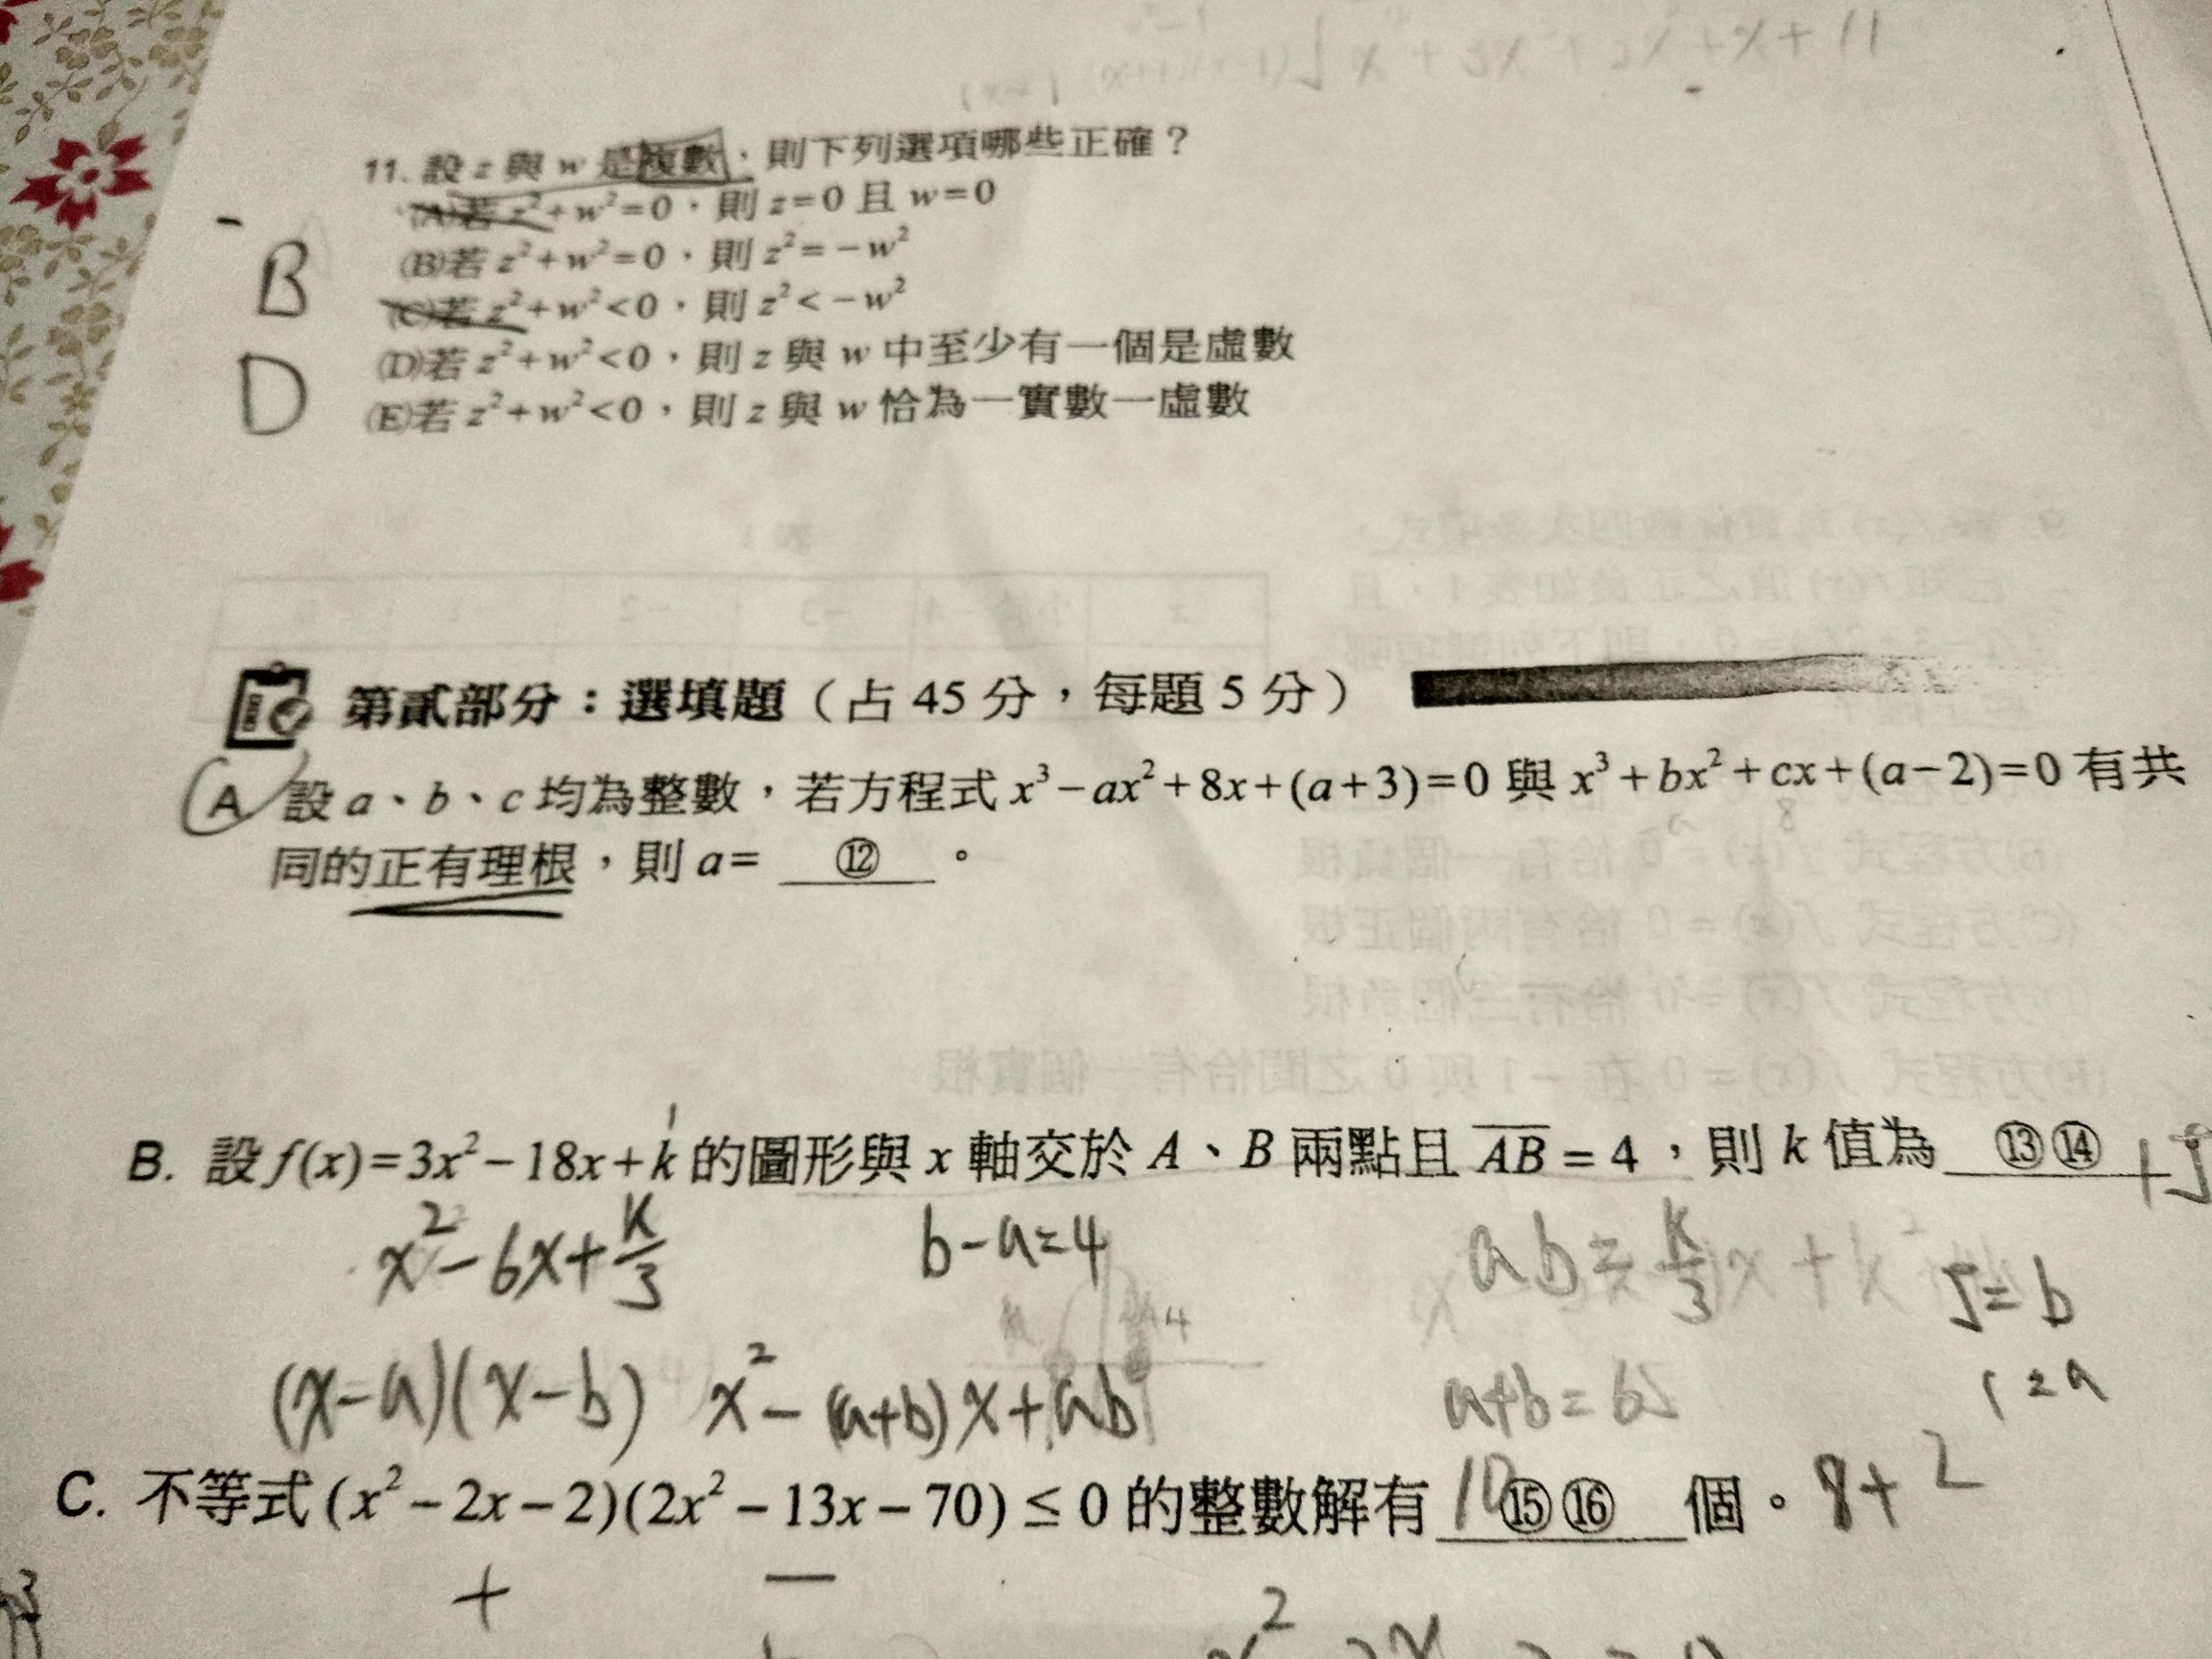 11. 設 z 與 w 是複數，則下列選項哪些正確？
(A)若 z²+w²=0，則 z=0 且 w=0
(B)若 z²+w²=0，則 z²=-w²
(C)若 z²+w²<0，則 z²<-w²
(D)若 z²+w²<0，則 z 與 w 中至少有一個是虛數
(E)若 z²+w²<0，則 z 與 w 恰為一實數一虛數
B
D
第貳部分：選填題（占 45 分，每題 5 分）
A 設 a、b、c 均為整數，若方程式 x³-ax²+8x+(a+3)=0 與 x³+bx²+cx+(a-2)=0 有共
同的正有理根，則 a= ⑫ 。
B. 設 f(x)=3x²-18x+k 的圖形與 x 軸交於 A、B 兩點且 AB = 4，則 k 值為 ⑬⑭
x²-6x+k/3 b-a=4 ab=k/3 5=b
(x-a)(x-b) x²-(a+b)x+ab a+b=6 1=a
C. 不等式 (x²-2x-2)(2x²-13x-70) ≤ 0 的整數解有 10 ⑮⑯ 個。 8+2
+ −